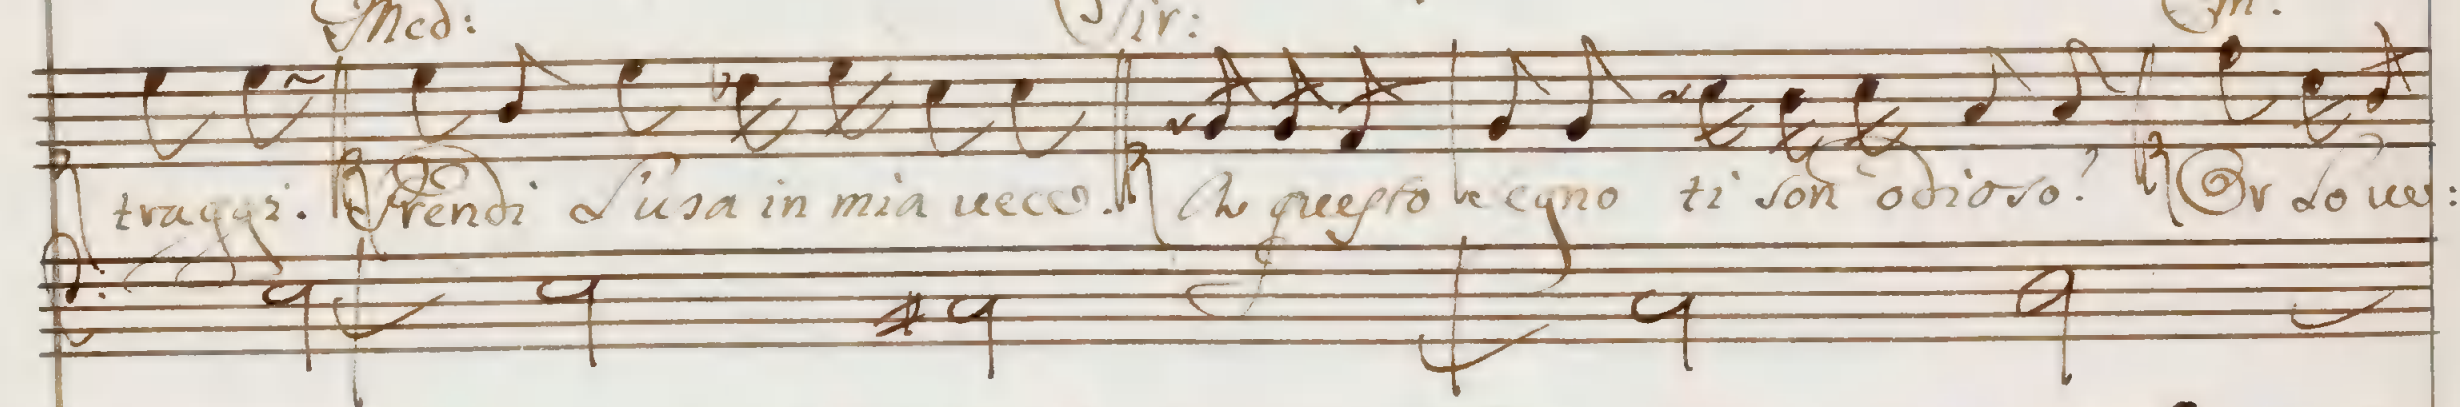 Med: Tir: Em:
traggi. Prendi L'usa in mia vece. A questo segno ti son odioso? Or Lo ve: